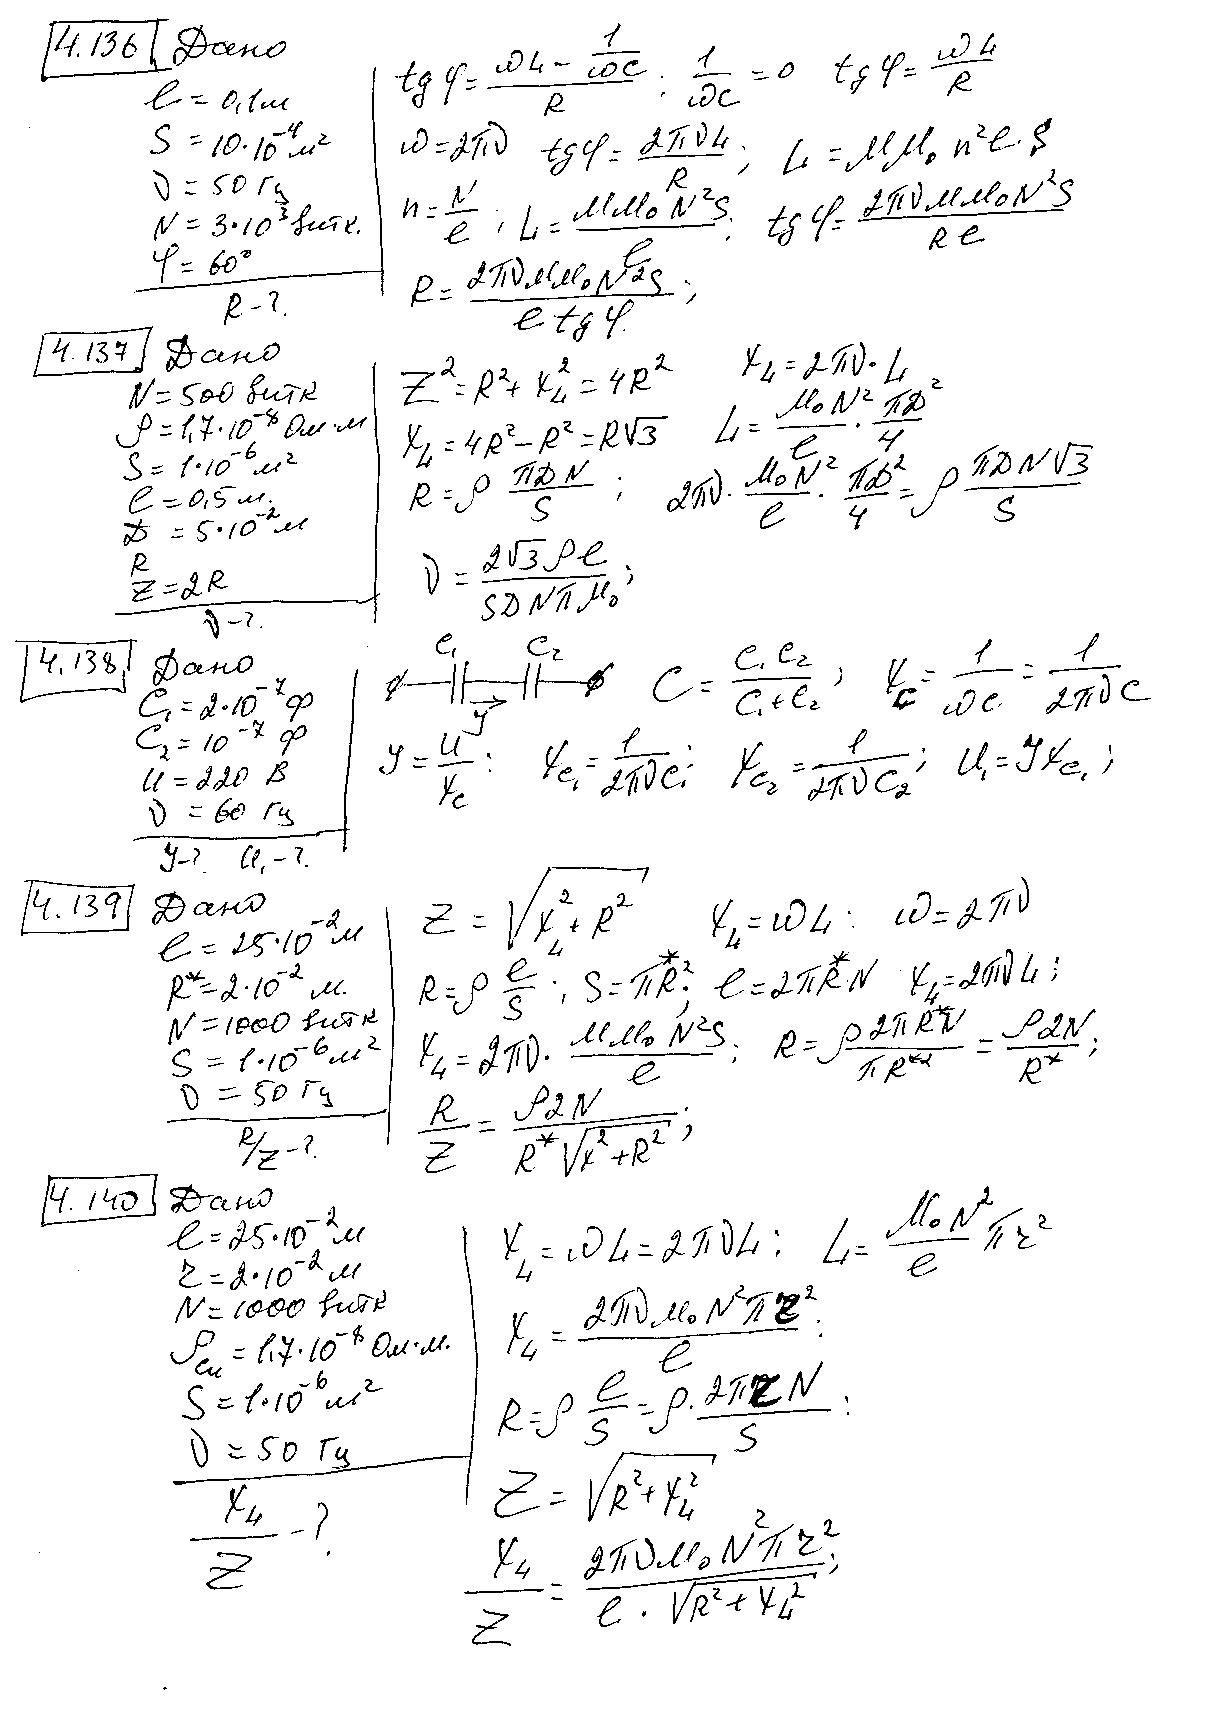 4.136 Дано
l = 0,1 м
S = 10·10⁻⁴ м²
ν = 50 Гц
N = 3·10³ витк.
φ = 60°
R - ?
tg φ = (ωL - 1/ωC)/R ; 1/ωC = 0 tg φ = ωL/R
ω = 2πν tg φ = 2πνL/R ; L = μμ₀ n² l·S
n = N/l ; L = μμ₀N²S/l ; tg φ = 2πνμμ₀N²S/Rl
R = 2πνμμ₀N²S/(l tg φ) ;
4.137 Дано
N = 500 витк
ρ = 1,7·10⁻⁸ Ом·м
S = 1·10⁻⁶ м²
l = 0,5 м.
D = 5·10⁻² м
R
Z = 2R
ν - ?
Z² = R² + X_L² = 4R² X_L = 2πν·L
X_L = 4R² - R² = R√3 L = μ₀N²/l · πD²/4
R = ρ πDN/S ; 2πν · μ₀N²/l · πD²/4 = ρ πDN√3/S
ν = 2√3ρl/(SDNπμ₀) ;
4.138 Дано
C₁ = 2·10⁻⁷ ф
C₂ = 10⁻⁷ ф
U = 220 В
ν = 60 Гц
У - ? U₁ - ?
C₁ C₂ У
C = C₁C₂/(C₁+C₂) ; X_C = 1/ωC = 1/2πνC
У = U/X_C ; X_C₁ = 1/2πνC₁ ; X_C₂ = 1/2πνC₂ ; U₁ = УX_C₁ ;
4.139 Дано
l = 25·10⁻² м
R* = 2·10⁻² м.
N = 1000 витк
S = 1·10⁻⁶ м²
ν = 50 Гц
R/Z - ?
Z = √(X_L² + R²) X_L = ωL ; ω = 2πν
R = ρ l/S ; S = πR*² ; l = 2πR*·N X_L = 2πνL ;
X_L = 2πν · μμ₀N²S/l ; R = ρ2πR*N/πR*² = ρ2N/R* ;
R/Z = ρ2N/(R*√(X² + R²)) ;
4.140 Дано
l = 25·10⁻² м
r = 2·10⁻² м
N = 1000 витк
ρ_см = 1,7·10⁻⁸ Ом·м.
S = 1·10⁻⁶ м²
ν = 50 Гц
X_L/Z - ?
X_L = ωL = 2πνL ; L = μ₀N²/l πr²
X_L = 2πνμ₀N²πr²/l ;
R = ρ l/S = ρ · 2πrN/S ;
Z = √(R² + X_L²)
X_L/Z = 2πνμ₀N²πr²/(l · √(R² + X_L²)) ;